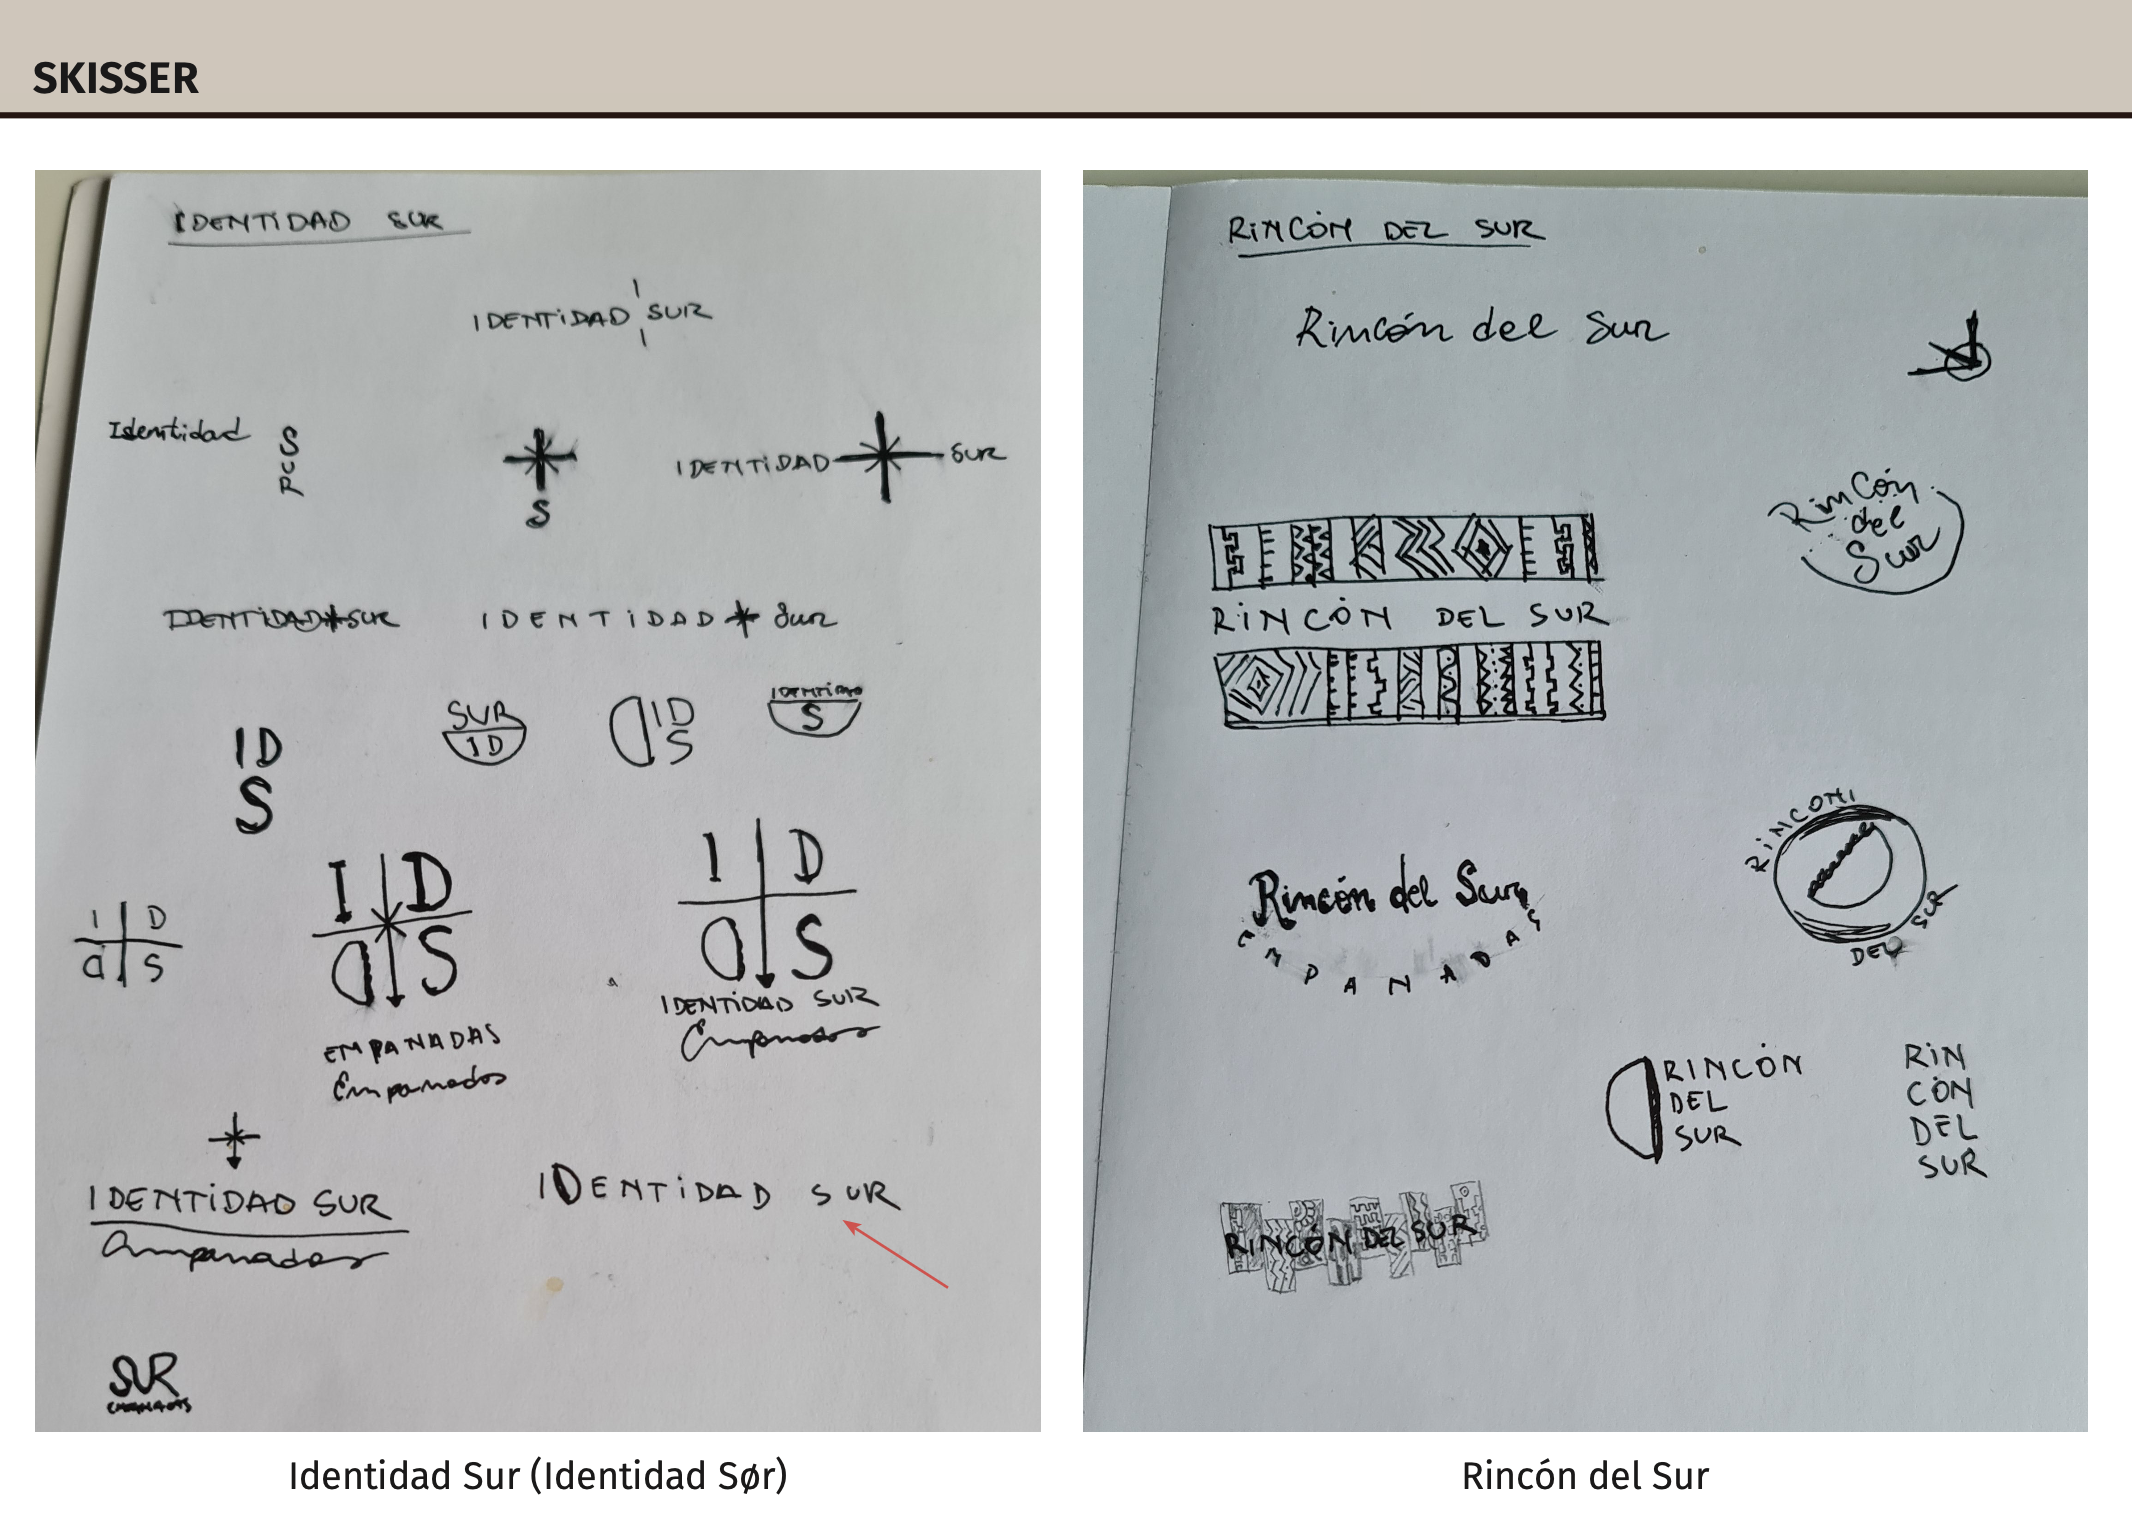 SKISSER
IDENTIDAD SUR
IDENTIDAD SUR
Identidad
S
U
R
S
IDENTIDAD SUR
IDENTIDAD*SUR
IDENTIDAD* Sur
ID
S
SUR
ID
ID
S
IDENTIDAD
S
I D
D S
I D
D S
EMPANADAS
Empanadas
I D
D S
IDENTIDAD SUR
Empanadas
IDENTIDAD SUR
Empanadas
IDENTIDAD SUR
SUR
EMPANADAS
Identidad Sur (Identidad Sør)
RINCÓN DEL SUR
Rincón del Sur
Rincón
del
Sur
RINCÓN DEL SUR
Rincón del Sur
EMPANADAS
RINCON
DEL SUR
RINCÓN
DEL
SUR
RIN
CÓN
DEL
SUR
RINCÓN DEL SUR
Rincón del Sur